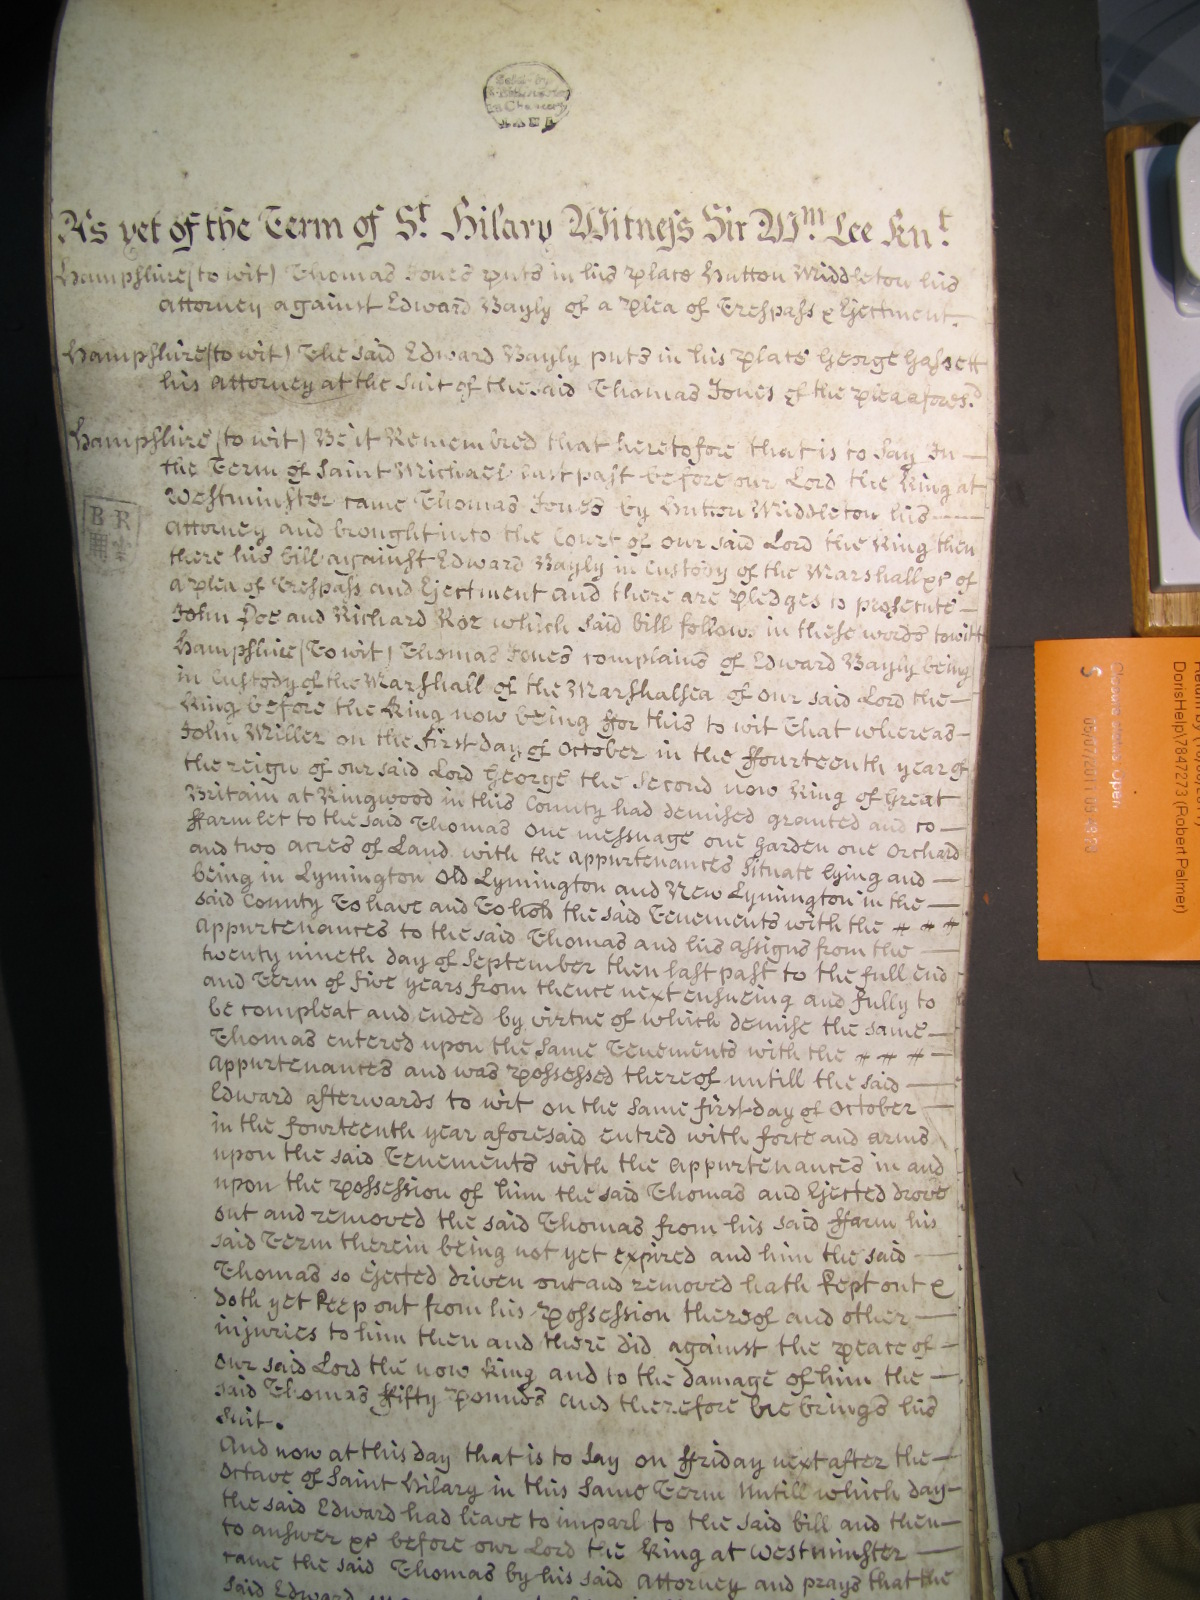 Sold by
in Chancery
LANE
As yet of the Term of St. Hilary Witness Sir Wm. Lee Knt.
Hampshire (to wit) Thomas Jones puts in his place Hutton Middleton his
attorney against Edward Bayly of a plea of Trespass & Ejectment.
Hampshire (to wit) The said Edward Bayly puts in his place George Gassett
his attorney at the suit of the said Thomas Jones of the plea afores.d
Hampshire (to wit) Be it Remembred that heretofore that is to say In
the Term of Saint Michael last past before our Lord the King at
Westminster came Thomas Jones by Hutton Middleton his
Attorney and brought into the Court of our said Lord the King then
there his bill against Edward Bayly in Custody of the Marshall &c of
a plea of Trespass and Ejectment and there are pledges to prosecute
John Doe and Richard Roe which said bill follows in these words towitt
Hampshire (To wit) Thomas Jones complains of Edward Bayly being
in Custody of the Marshall of the Marshalsea of our said Lord the
King before the King now being ffor this to wit That whereas
John Miller on the first day of October in the ffourteenth year of
the reign of our said Lord George the Second now King of Great
Britain at Ringwood in this County had demised granted and to
ffarm let to the said Thomas One messuage one Garden one Orchard
and two acres of Land with the appurtenances Situate lying and
being in Lymington Old Lymington and New Lymington in the
said County To have and To hold the said Tenements with the # # #
appurtenances to the said Thomas and his assigns from the
twenty nineth day of September then last past to the full end
and Term of five years from thence next ensueing and fully to
be compleat and ended by virtue of which demise the same
Thomas entered upon the same Tenements with the # # #
appurtenances and was possessed thereof untill the said
Edward afterwards to wit on the same first day of October
in the fourteenth year aforesaid entred with force and arms
upon the said Tenements with the appurtenances in and
upon the possession of him the said Thomas and Ejected drove
out and removed the said Thomas from his said ffarm his
said Term therein being not yet expired and him the said
Thomas so ejected driven out and removed hath kept out &
doth yet keep out from his possession thereof and other
injuries to him then and there did against the peace of
our said Lord the now King and to the damage of him the
said Thomas ffifty pounds and therefore he brings his
suit.
And now at this day that is to say on ffriday next after the
Octave of Saint Hilary in this same Term Untill which day
the said Edward had leave to imparl to the said bill and then
to answer &c before our Lord the King at Westminster
came the said Thomas by his said Attorney and prays that the
said Edward
B R
Closure status: Open
05/07/2011
S
DorisHelp\7847273 (Robert Palmer)